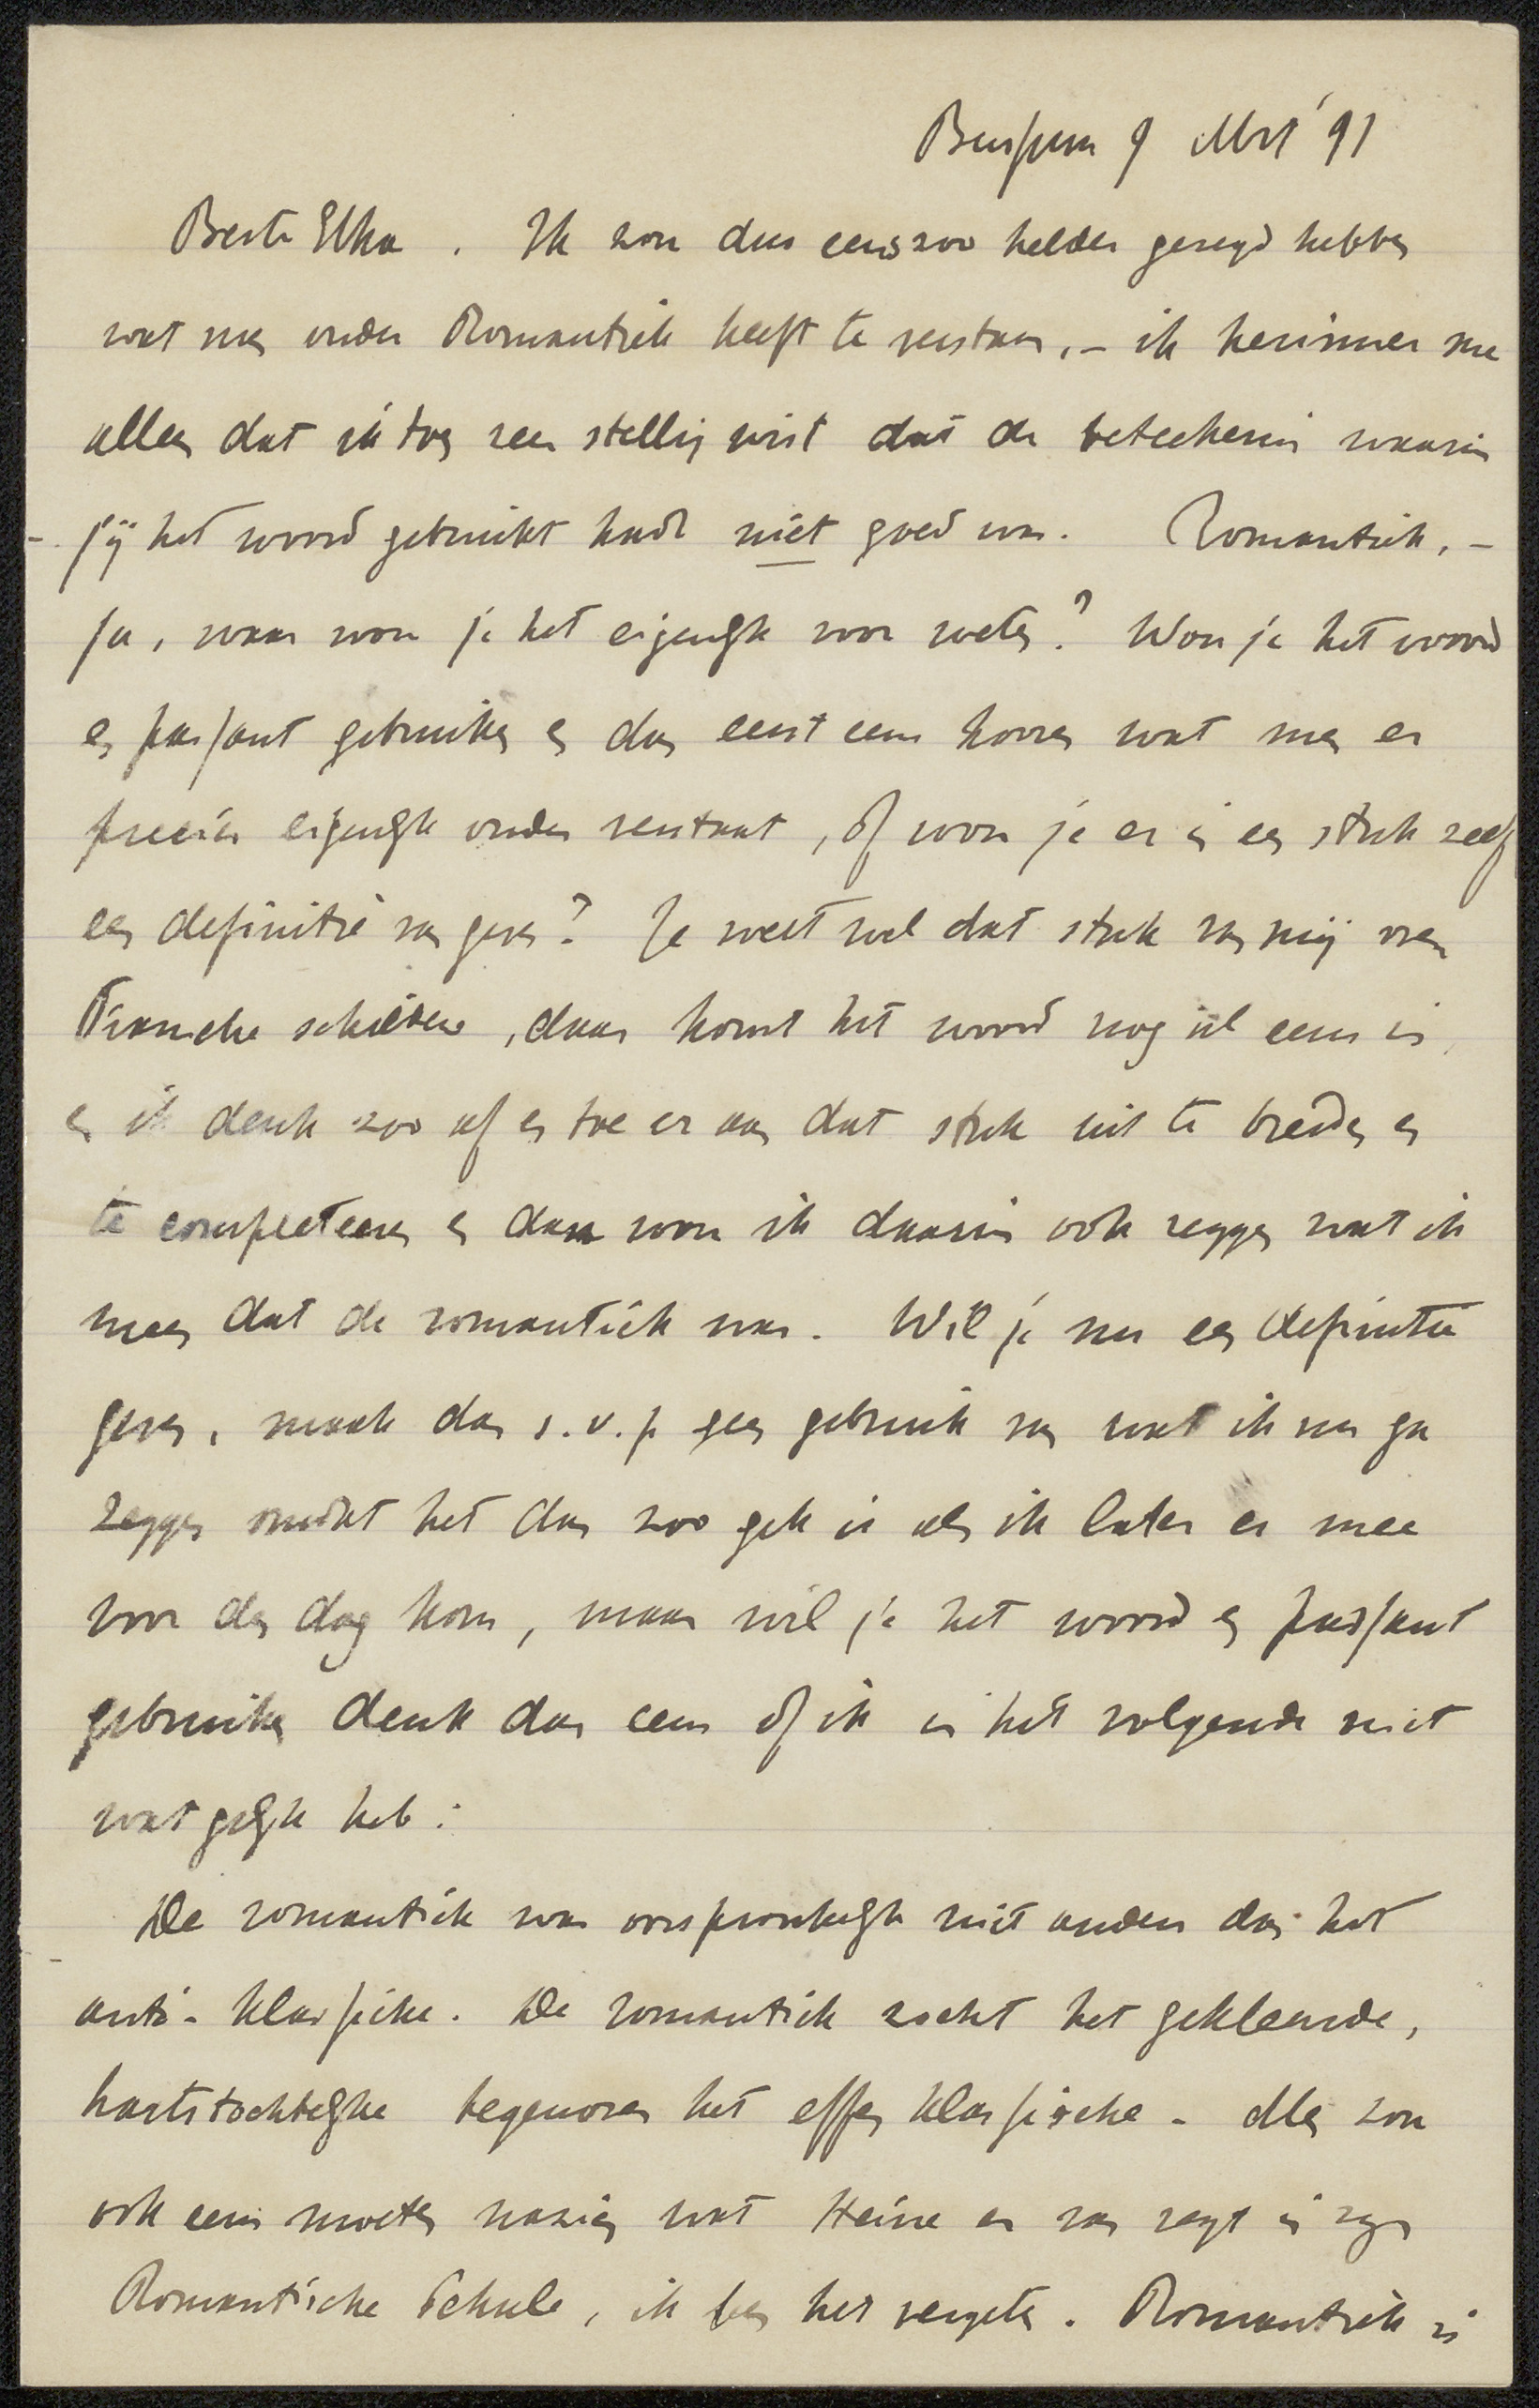 Bussum 9 Mrt '91
Beste Elha. Ik zou dus eens zoo helder gezegd hebben
wat men onder Romantiek heeft te verstaan, - ik herinner me
alleen dat ik toen zeer stellig wist dat de beteekenis waarin
jij het woord gebruikt hadt niet goed was. Romantiek, -
Ja, waar wou je het eigenlijk voor weten? Wou je het woord
en passant gebruiken en dan eerst eens hooren wat men er
precies eigenlijk onder verstaat, of wou je er in een stuk zelf
een definitie van geven? Je weet wel dat stuk van mij over
Fransche schilders, daar komt het woord nog al eens in,
en ik denk zoo af en toe er aan dat stuk uit te breiden en
te completeeren en dan wou ik daarin ook zeggen wat ik
meen dat de romantiek was. Wil je nu een definitie
geven, maak dan s.v.p geen gebruik van wat ik nu ga
zeggen omdat het dan zoo gek is als ik later er mee
voor den dag kom, maar wil je het woord en passant
gebruiken denk dan eens of ik in het volgende niet
wat gelijk heb:
De romantiek was oorspronkelijk niet anders dan het
anti-klassieke. De romantiek zocht het gekleurde,
hartstochtelijke tegenover het effen klassische - Men zou
ook eens moeten nazien wat Heine er van zegt in zijn
Romantische Schule, ik ben het vergeten. Romantiek is